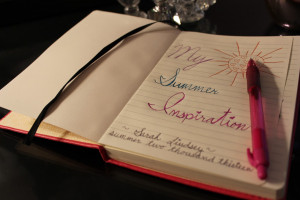 My
Summer
Inspiration
~ Sarah Lindsey ~
summer two thousand thirteen